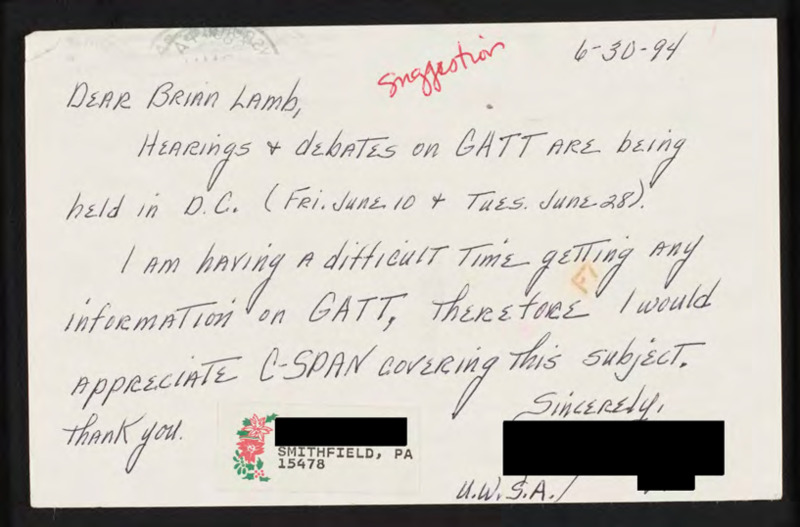 6-30-94
suggestion
Dear Brian Lamb,
Hearings + debates on GATT are being
held in D.C. (Fri. June 10 + Tues. June 28).
I am having a difficult time getting any
information on GATT, therefore I would
appreciate C-SPAN covering this subject.
Thank you.
Sincerely,
SMITHFIELD, PA
15478
U.W.S.A./